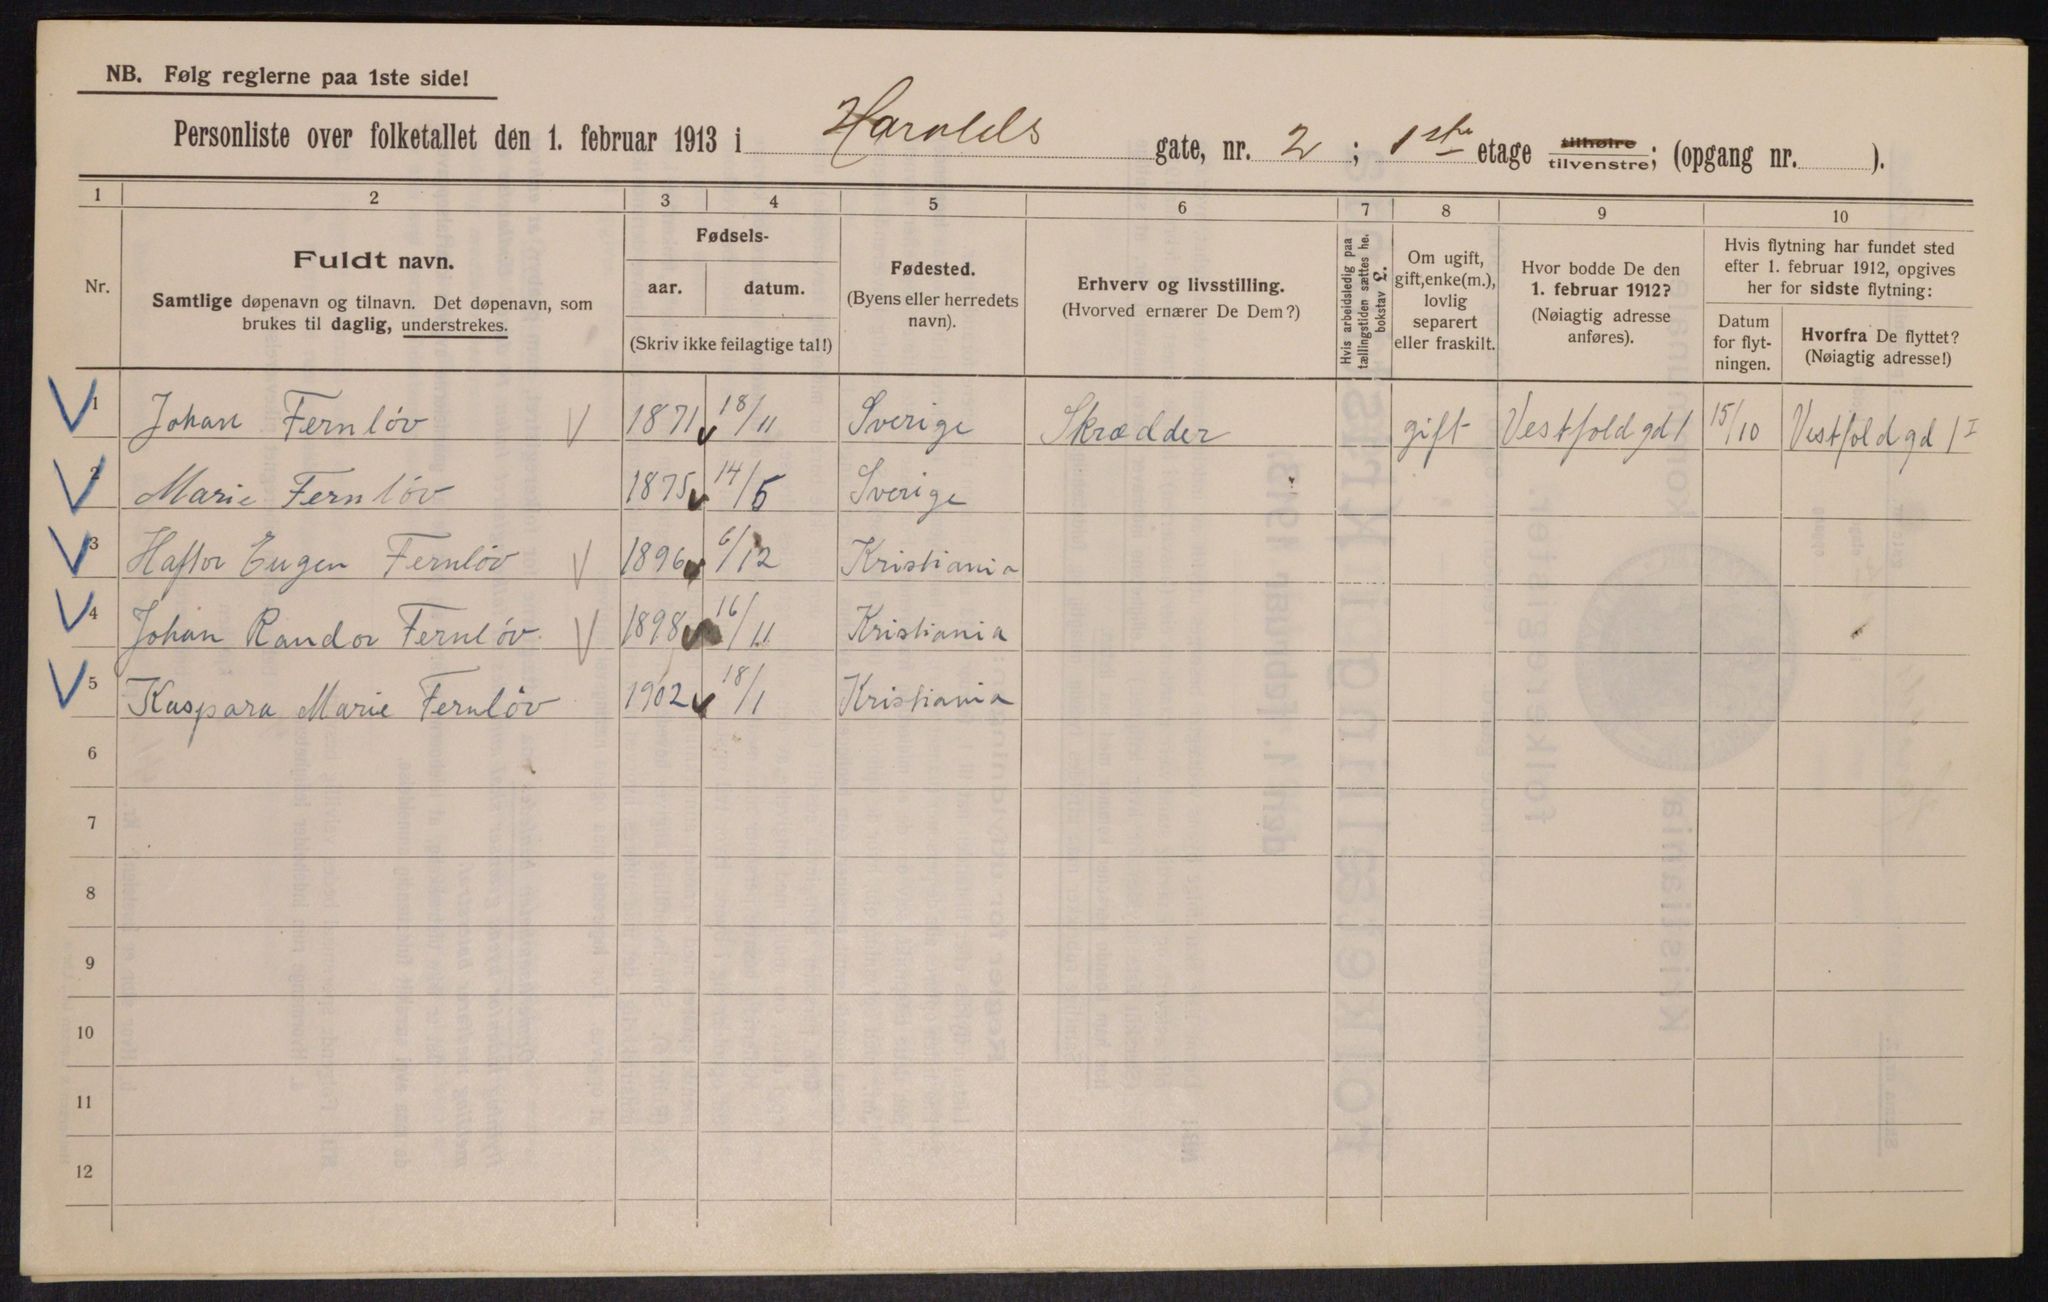 NB. Følg reglerne paa 1ste side!
Personliste over folketallet den 1. februar 1913 i Haralds gate, nr. 2 ; 1ste etage tilhøire tilvenstre; (opgang nr. ).
1 2 3 4 5 6 7 8 9 10
Nr.
Fuldt navn.
Samtlige døpenavn og tilnavn. Det døpenavn, som
brukes til daglig, understrekes.
Fødsels-
aar. datum.
(Skriv ikke feilagtige tal!)
Fødested.
(Byens eller herredets
navn).
Erhverv og livsstilling.
(Hvorved ernærer De Dem?)
Hvis arbeidsledig paa
tællingstiden sættes he.
bokstav L.
Om ugift,
gift, enke(m.),
lovlig
separert
eller fraskilt.
Hvor bodde De den
1. februar 1912?
(Nøiagtig adresse
anføres).
Hvis flytning har fundet sted
efter 1. februar 1912, opgives
her for sidste flytning:
Datum
for flyt-
ningen.
Hvorfra De flyttet?
(Nøiagtig adresse!)
1 Johan Fernløv 1871 18/11 Sverige Skrædder gift Vestfoldgd 1 15/10 Vestfoldgd 1 I
2 Marie Fernløv 1875 14/5 Sverige
3 Haftor Eugen Fernløv 1896 6/12 Kristiania
4 Johan Randor Fernløv 1898 16/11 Kristiania
5 Kaspara Marie Fernløv 1902 18/1 Kristiania
6
7
8
9
10
11
12